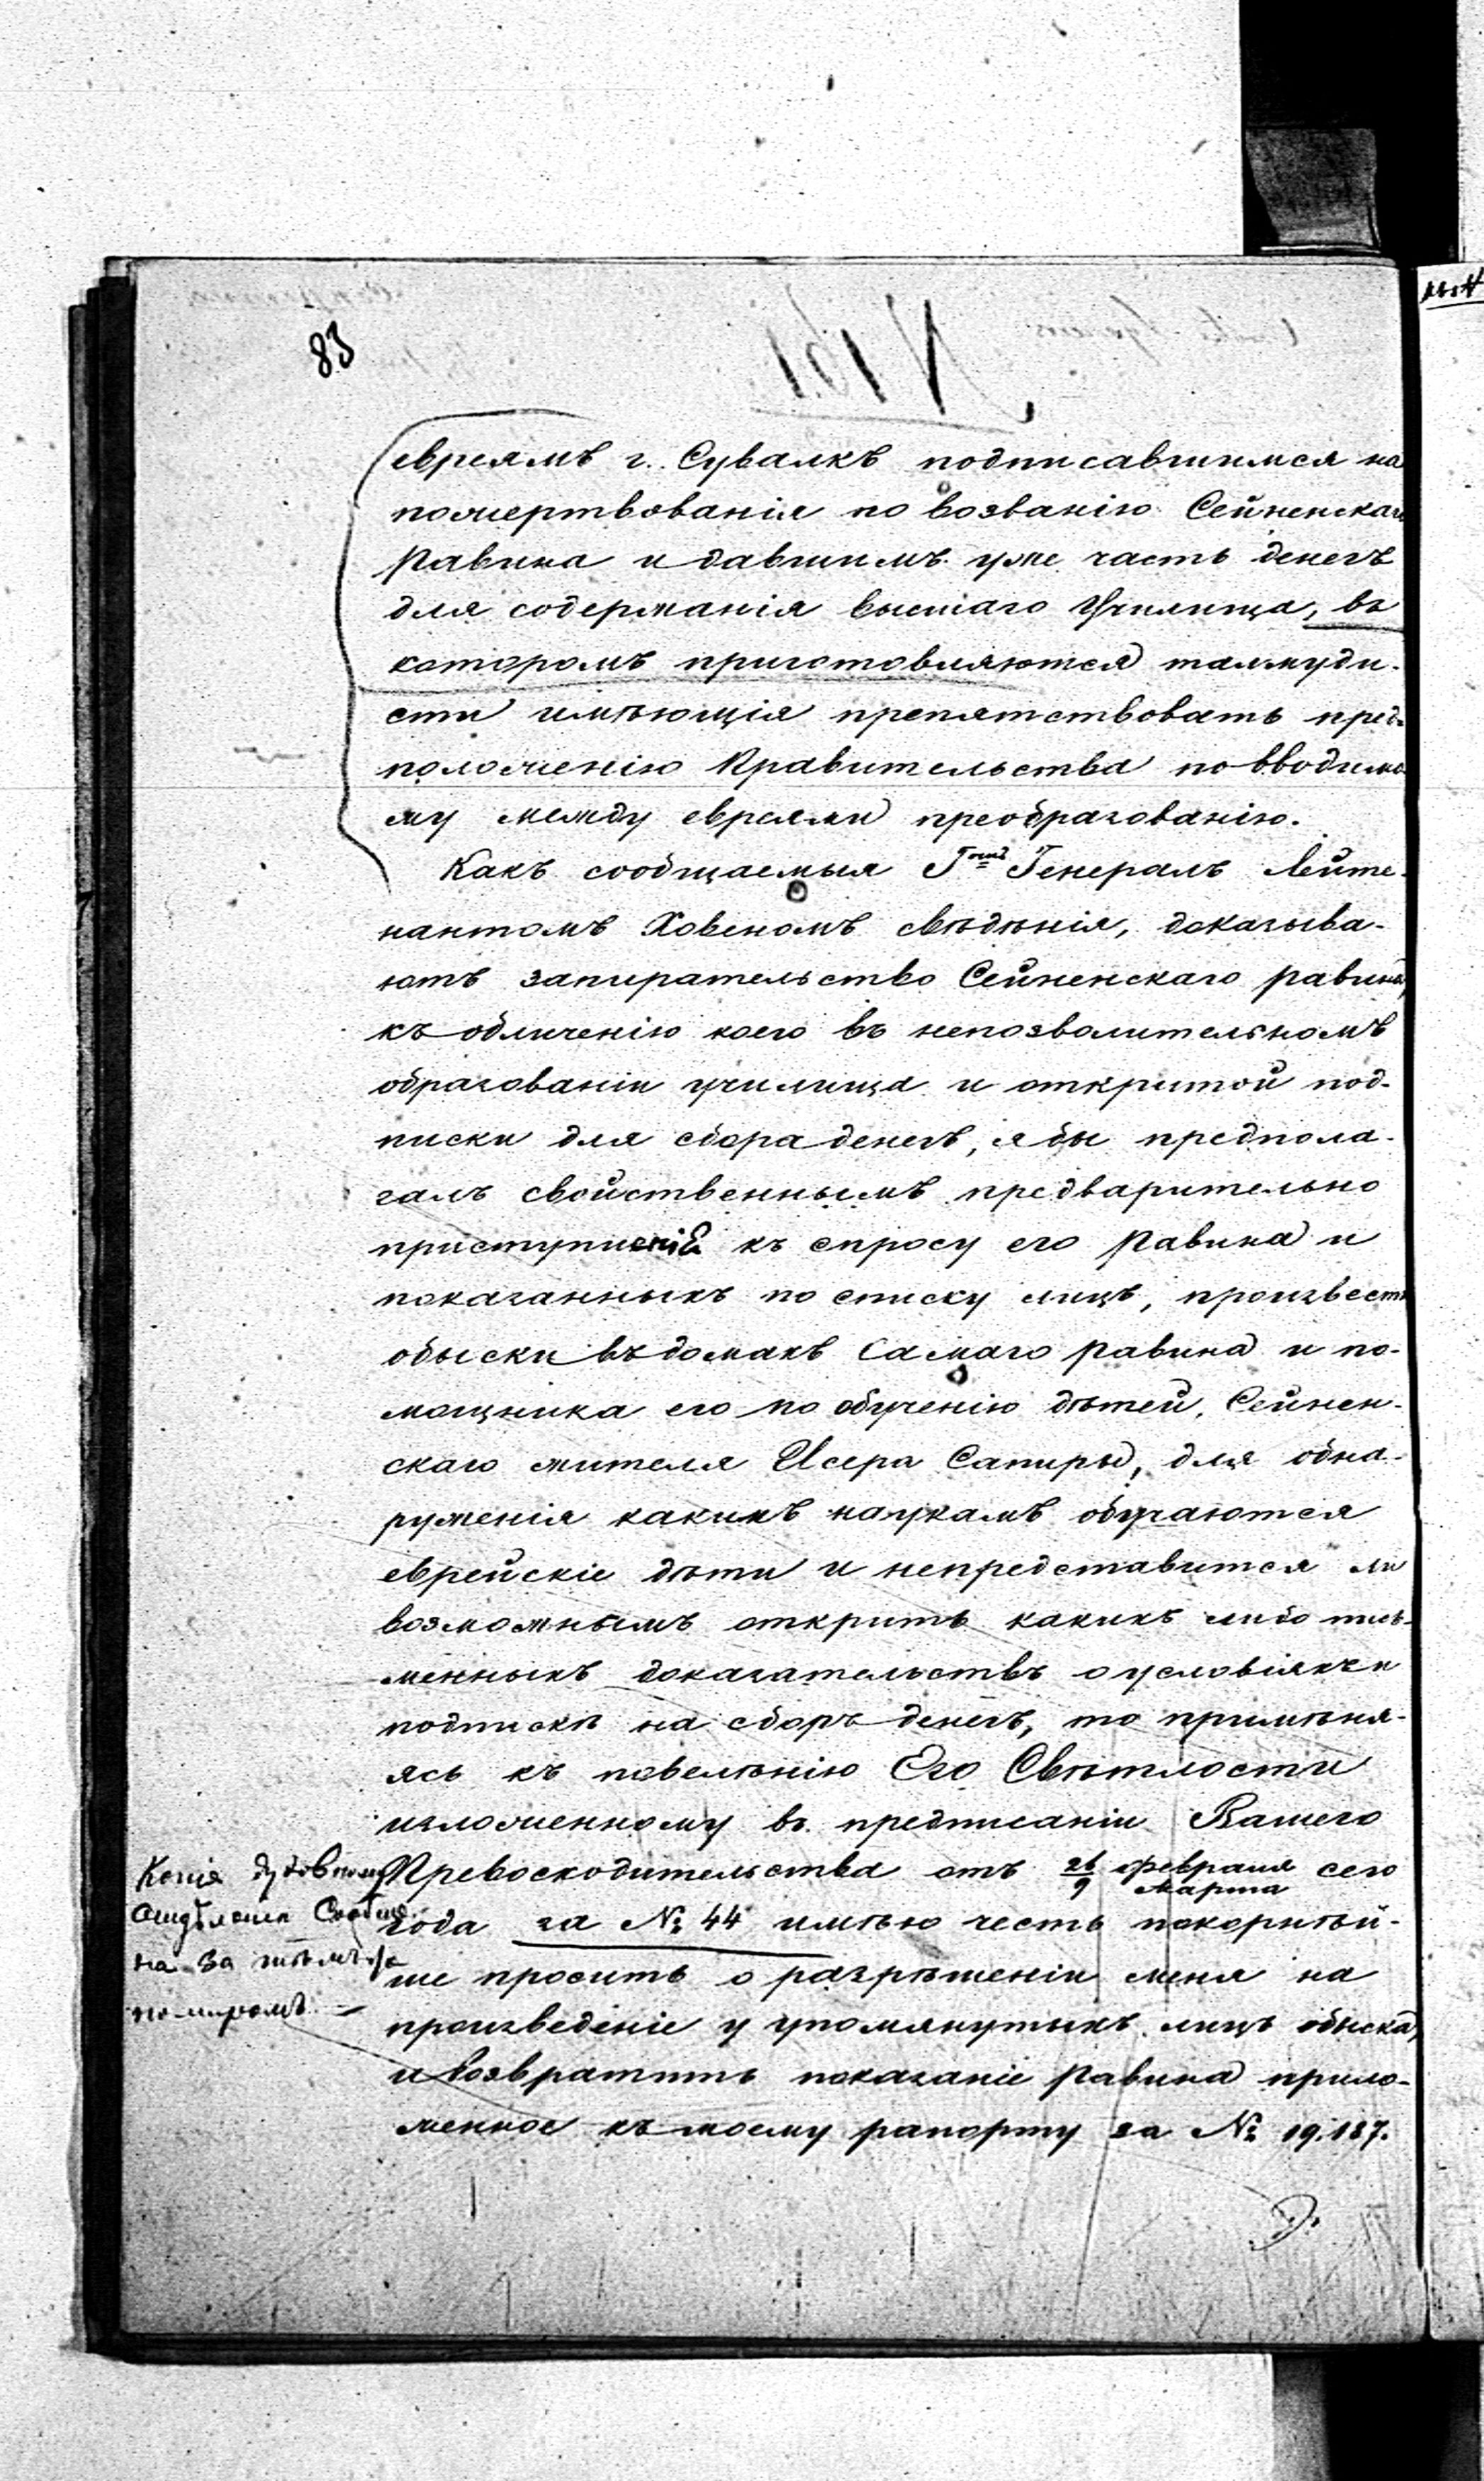 83
евреямъ г. Сувалкъ подписавшимся на
пожертвованія по воззванію Сейненскаго
Равина и давшимъ уже часть денегъ
для содержанія высшаго Училища, въ
которомъ приготовляются талмуди-
сти имѣющія препятствовать пред-
положенію Правительства по вводимо-
му между евреями преобразованію.
Какъ сообщаемыя Гномъ Генералъ Лейте-
нантомъ Ховеномъ свѣдѣнія, доказыва-
ютъ запирательство Сейненскаго равина,
къ обличенію коего въ непозволительномъ
образованіи училища и открытой под-
писки для сбора денегъ, я бы предпола-
галъ свойственнымъ предварительно
приступленія къ спросу его Равина и
показанныхъ по списку лицъ, произвесть
обыски въ домахъ самаго равина и по-
мощника его по обученію дѣтей, Сейнен-
скаго жителя Исера Сапиры, для обна-
руженія какимъ наукамъ обучаются
еврейскіе дѣти и непредставится ли
возможнымъ открыть какихъ либо пись-
менныхъ доказательствъ о условіяхъ и
подпискѣ на сборъ денегъ, то примѣня-
ясь къ повелѣнію Его Свѣтлости
изложенному въ предписаніи Вашего
Превосходительства отъ 26/9 февраля/Марта сего
года за № 44 имѣю честь покорнѣй-
ше просить о разрѣшеніи меня на
произведеніе у упомянутыхъ лицъ обыска,
и возвратить показаніе Равина прило-
женное къ моему рапорту за № 19.187.
Копія Духовному
Отдѣленію Сообще-
на за тѣмъ же
номеромъ.